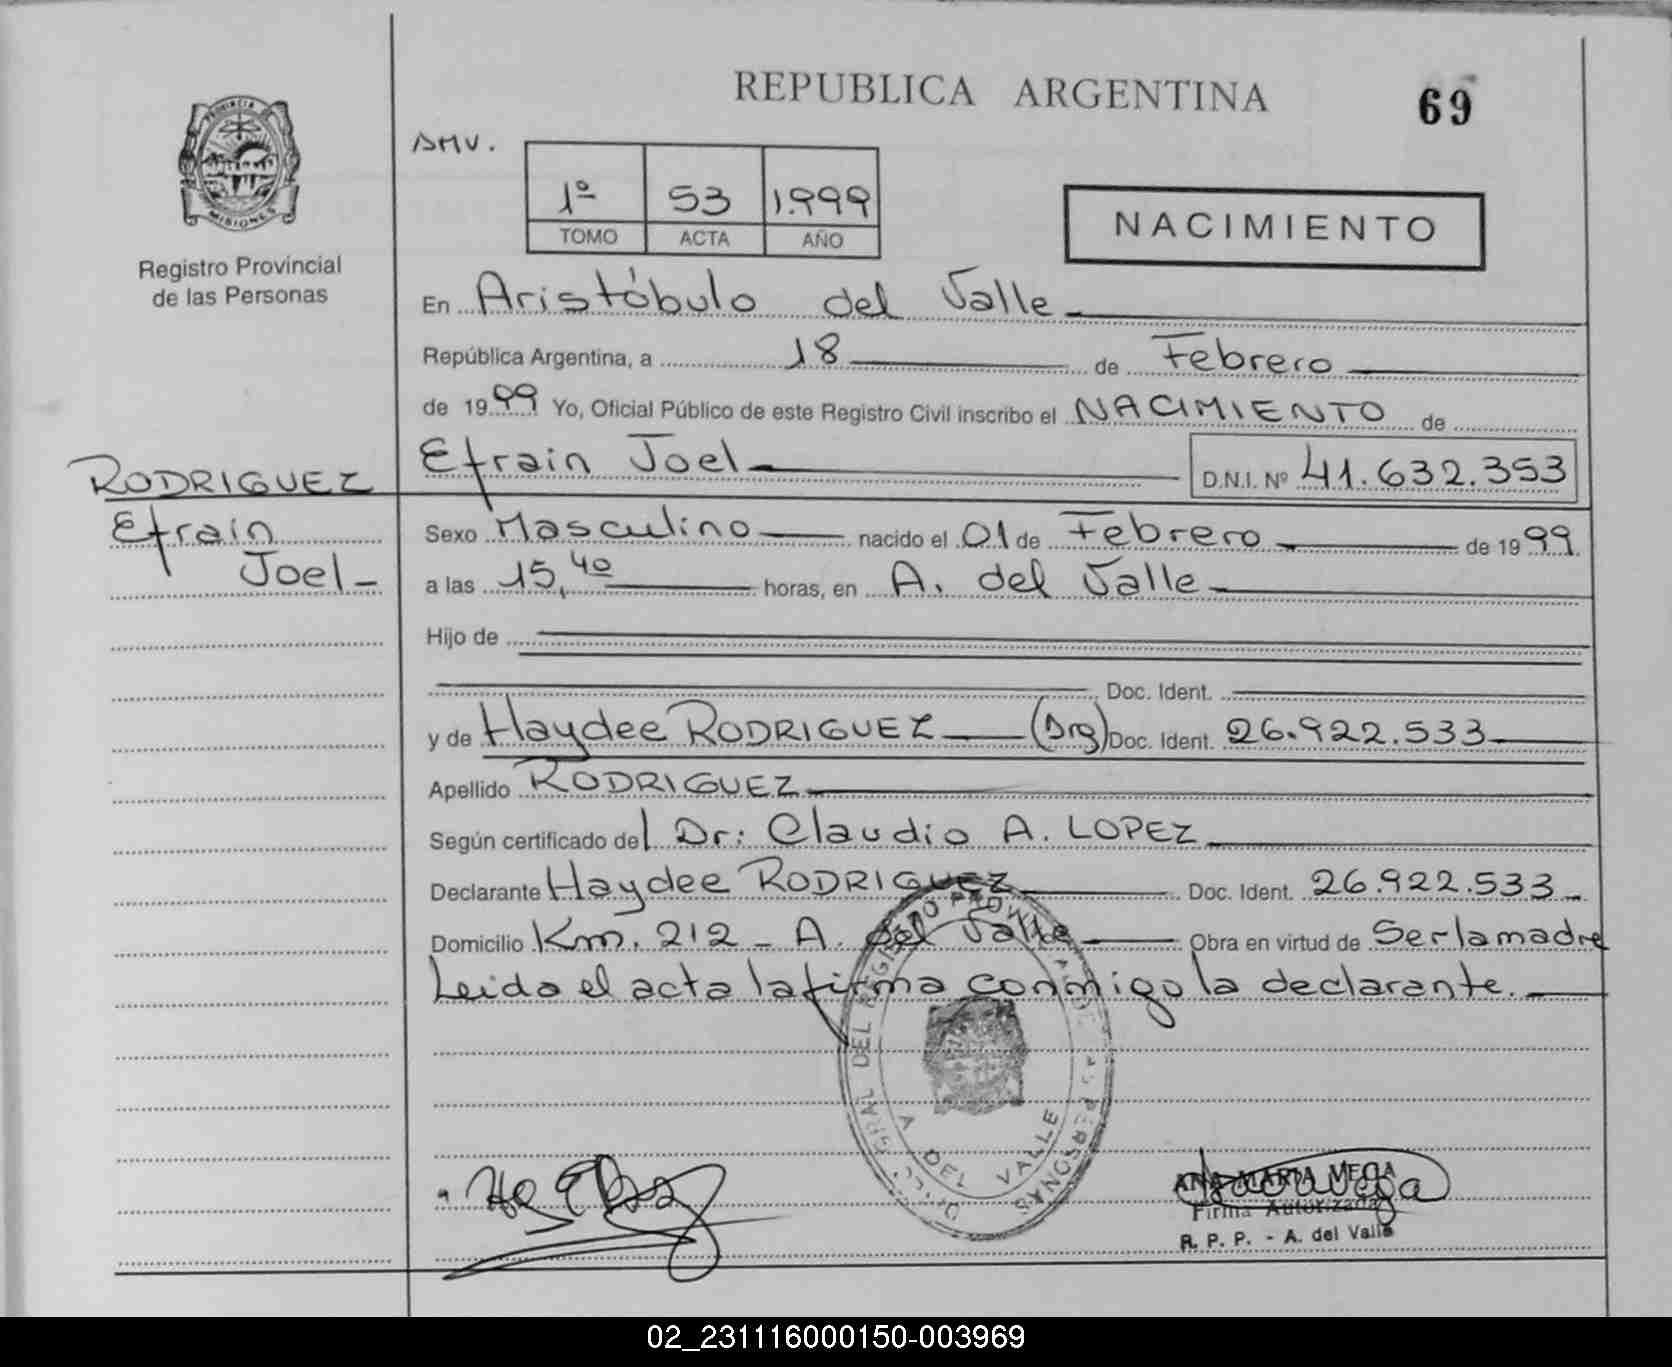 REPUBLICA ARGENTINA
69
PROVINCIA
MISIONES
Registro Provincial
de las Personas
DMV.
1º 53 1.999
TOMO ACTA AÑO
NACIMIENTO
En Aristóbulo del Valle
República Argentina, a 18 de Febrero
de 1999 Yo, Oficial Público de este Registro Civil inscribo el NACIMIENTO de
Efrain Joel D.N.I. Nº 41.632.353
RODRIGUEZ
Efrain
Joel
Sexo Masculino nacido el 01 de Febrero de 1999
a las 15,40 horas, en A. del Valle
Hijo de
Doc. Ident.
y de Haydee RODRIGUEZ (Arg) Doc. Ident. 26.922.533
Apellido RODRIGUEZ
Según certificado del Dr: Claudio A. LOPEZ
Declarante Haydee RODRIGUEZ Doc. Ident. 26.922.533
Domicilio Km. 212 - A. del Valle Obra en virtud de Ser la madre
Leida el acta la firma conmigo la declarante.
DIREC. GRAL DEL REGISTRO PROVINCIAL DE LAS PERSONAS
A DEL VALLE
ANA MARIA VEGA
Firma Autorizada
R. P. P. - A. del Valle
02_231116000150-003969